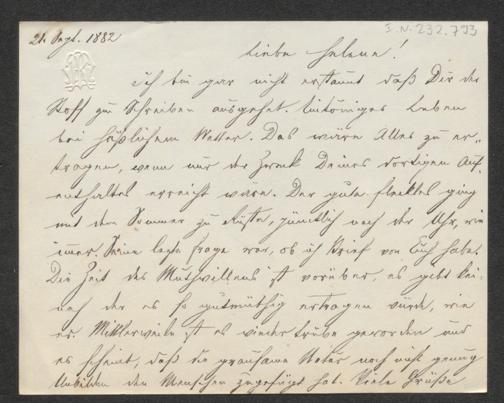 21. Sept. 1882
I.N. 232.793
Liebe Helene!
Ich bin gar nicht erstaunt daß Dir der
Stoff zum Schreiben ausgehet. Eintöniges Leben
bei häßlichem Wetter. Das wäre Alles zu er-
tragen, wenn nur der Zweck Deines dortigen Auf-
enthaltes erreicht wäre. Der gute ging
mit dem Sommer zu, pünktlich nach der Uhr, wie
immer. Seine letzte Frage war, ob ich Brief von Euch habe.
Die Zeit des Muthwillens ist vorüber, es gibt Kei-
nen der es so gutmüthig ertragen würde, wie
er. Mittlerweile ist es wieder trübe geworden und
es scheint, daß die grausame Natur noch nicht genug
Unbilden den Menschen zugefügt hat. Viele Grüße